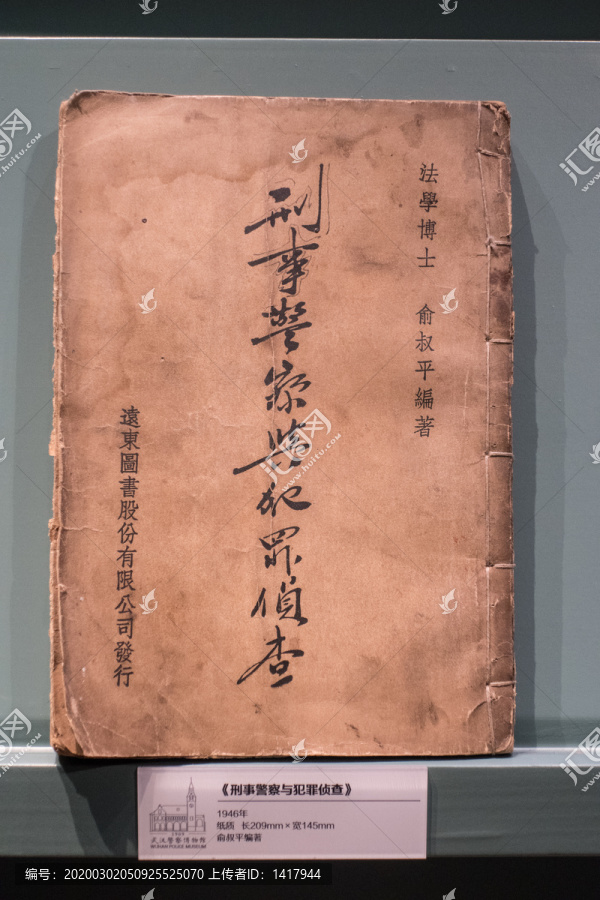 法學博士 俞叔平編著
刑事警察與犯罪偵查
遠東圖書股份有限公司發行
《刑事警察与犯罪侦查》
1946年
纸质 长209mm×宽145mm
俞叔平编著
武汉警察博物馆
WUHAN POLICE MUSEUM
汇图网
huitu.com
编号：20200302050925525070 上传者ID：1417944